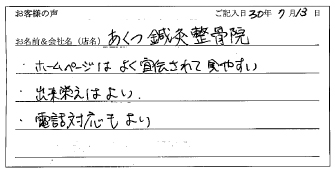 お客様の声 ご記入日30年7月13日
お名前&会社名(店名) あくつ鍼灸整骨院
・ホームページはよく宣伝されて見やすい
・出来栄えはよい.
・電話対応もよい